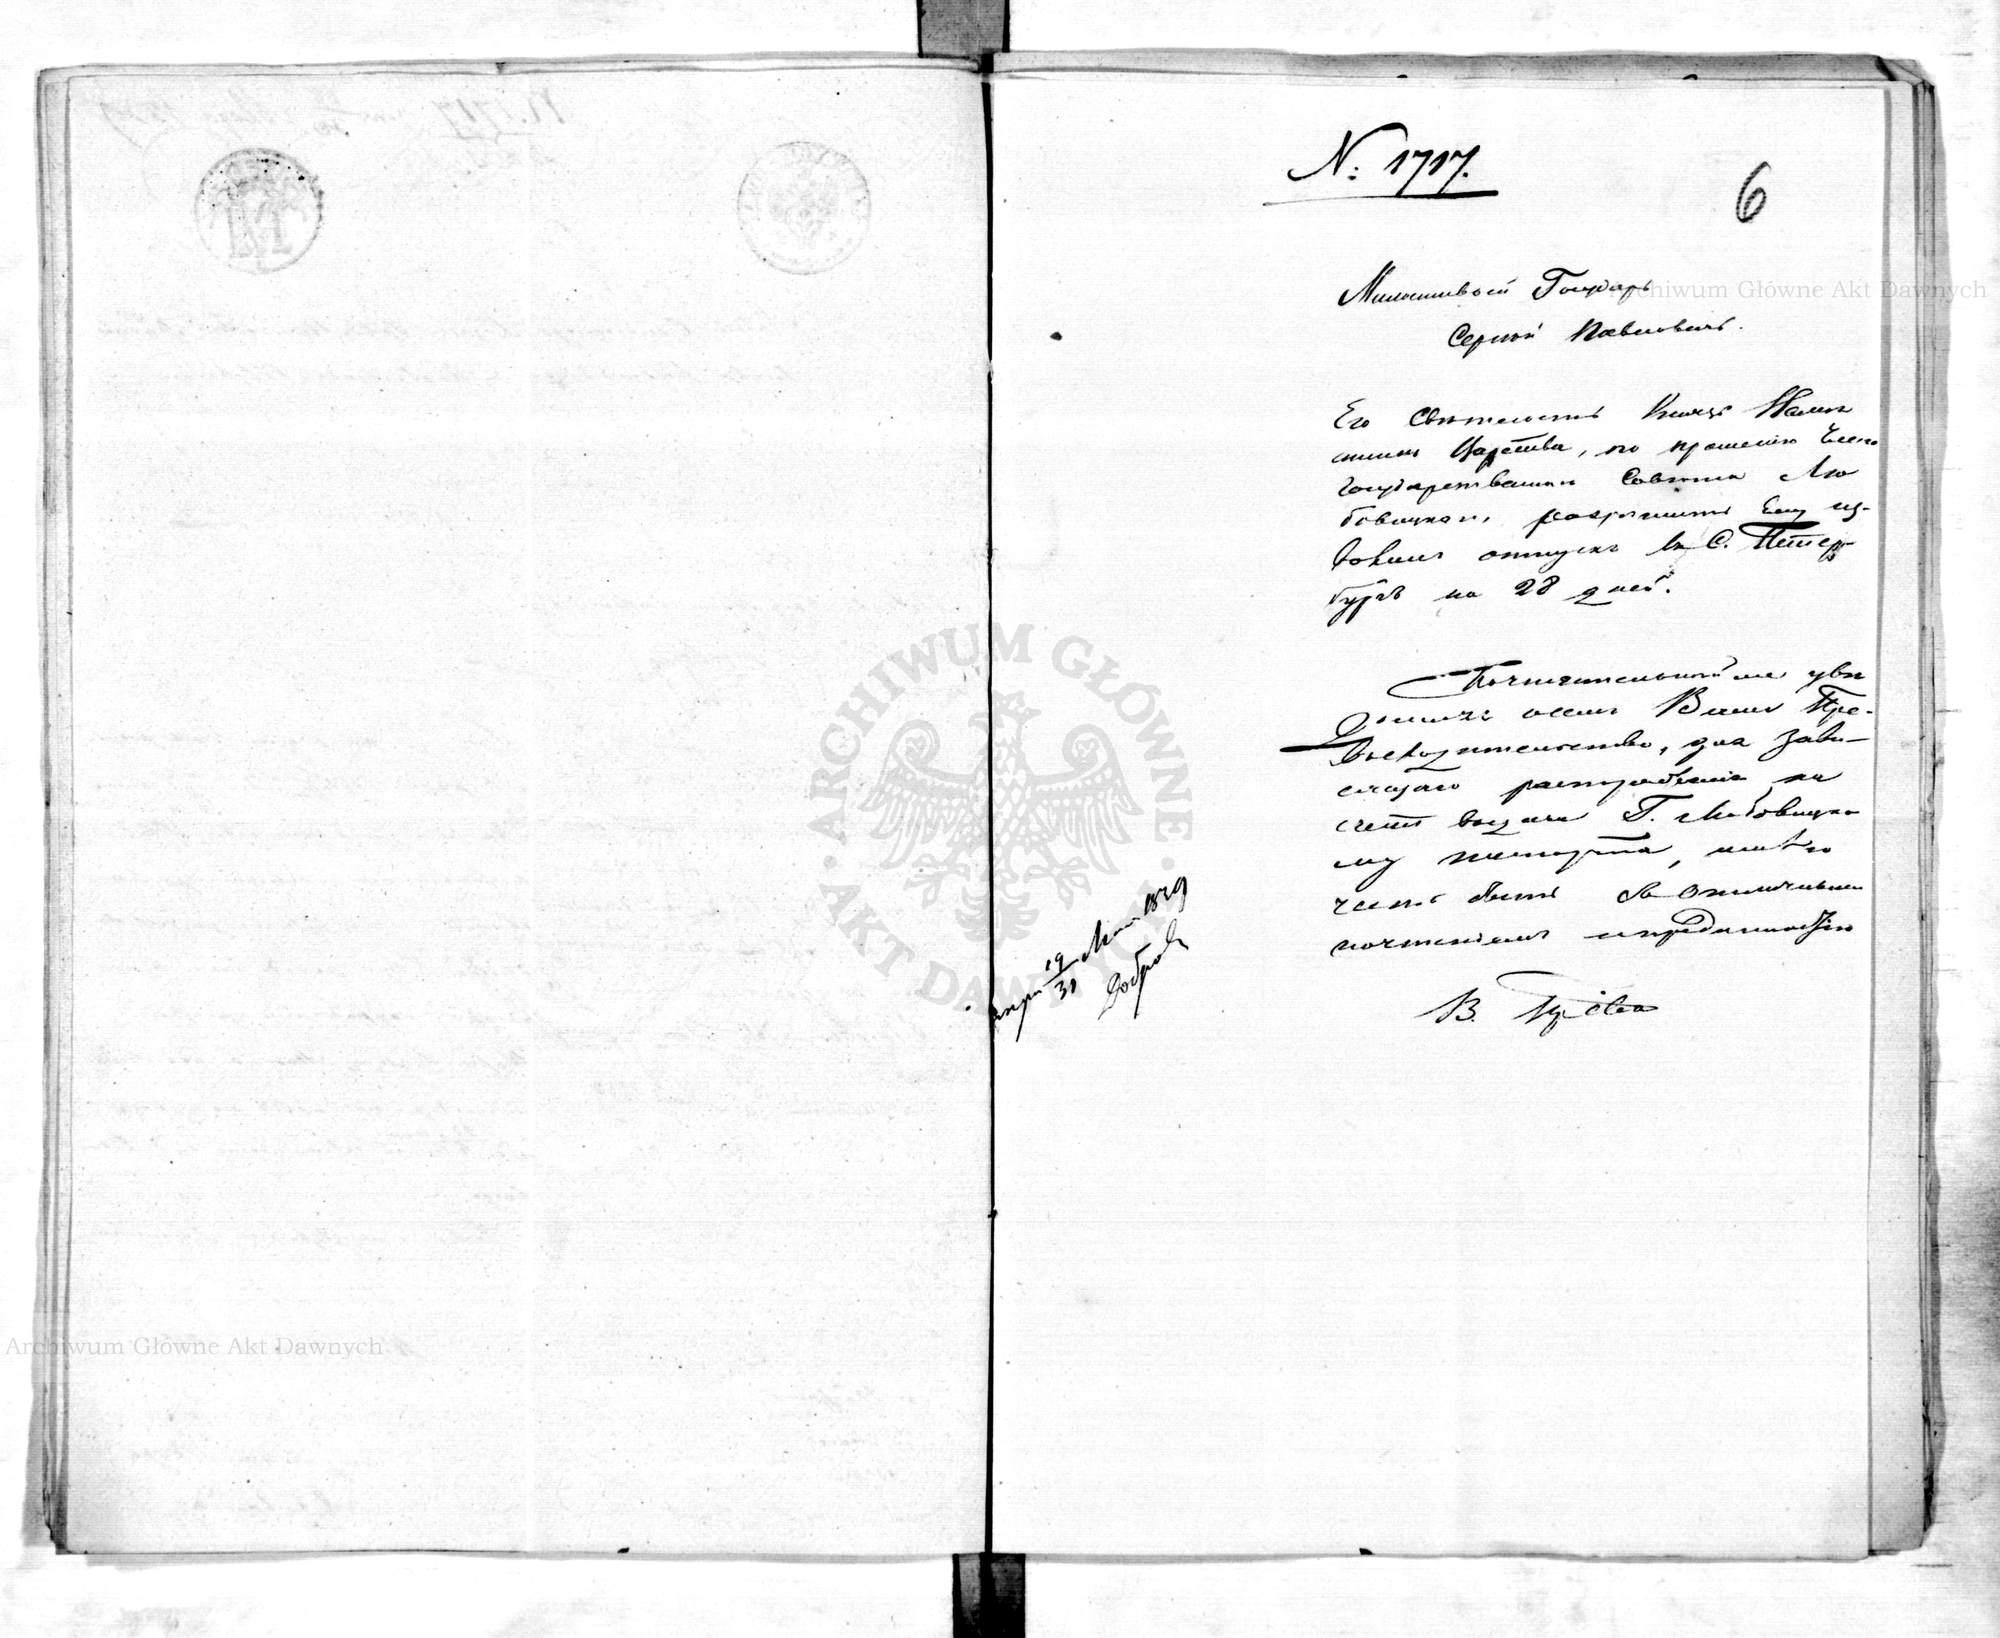 N: 1717.
6
Милостивый Государь
Сергѣй Павловичъ.
Его Свѣтлость Князь Намѣст
никъ Царства, по прошенію Члена
Государственнаго Совѣта Лю
бовицкаго, разрѣшилъ Ему уѣ-
въ С. Петер
бургъ на 28 дней.
Почтительнѣйше увѣ
домляя о семъ Ваше Пре-
восходительство, для зави-
сящаго распоряженія на
счетъ выдачи Г. Любовицко
му паспорта, имѣю
честь быть съ отличнымъ
почтеніемъ и преданностію
В.
19
31 Мая 1849
ARCHIWUM GŁÓWNE
AKT DAWNYCH
Archiwum Główne Akt Dawnych
Archiwum Główne Akt Dawnych